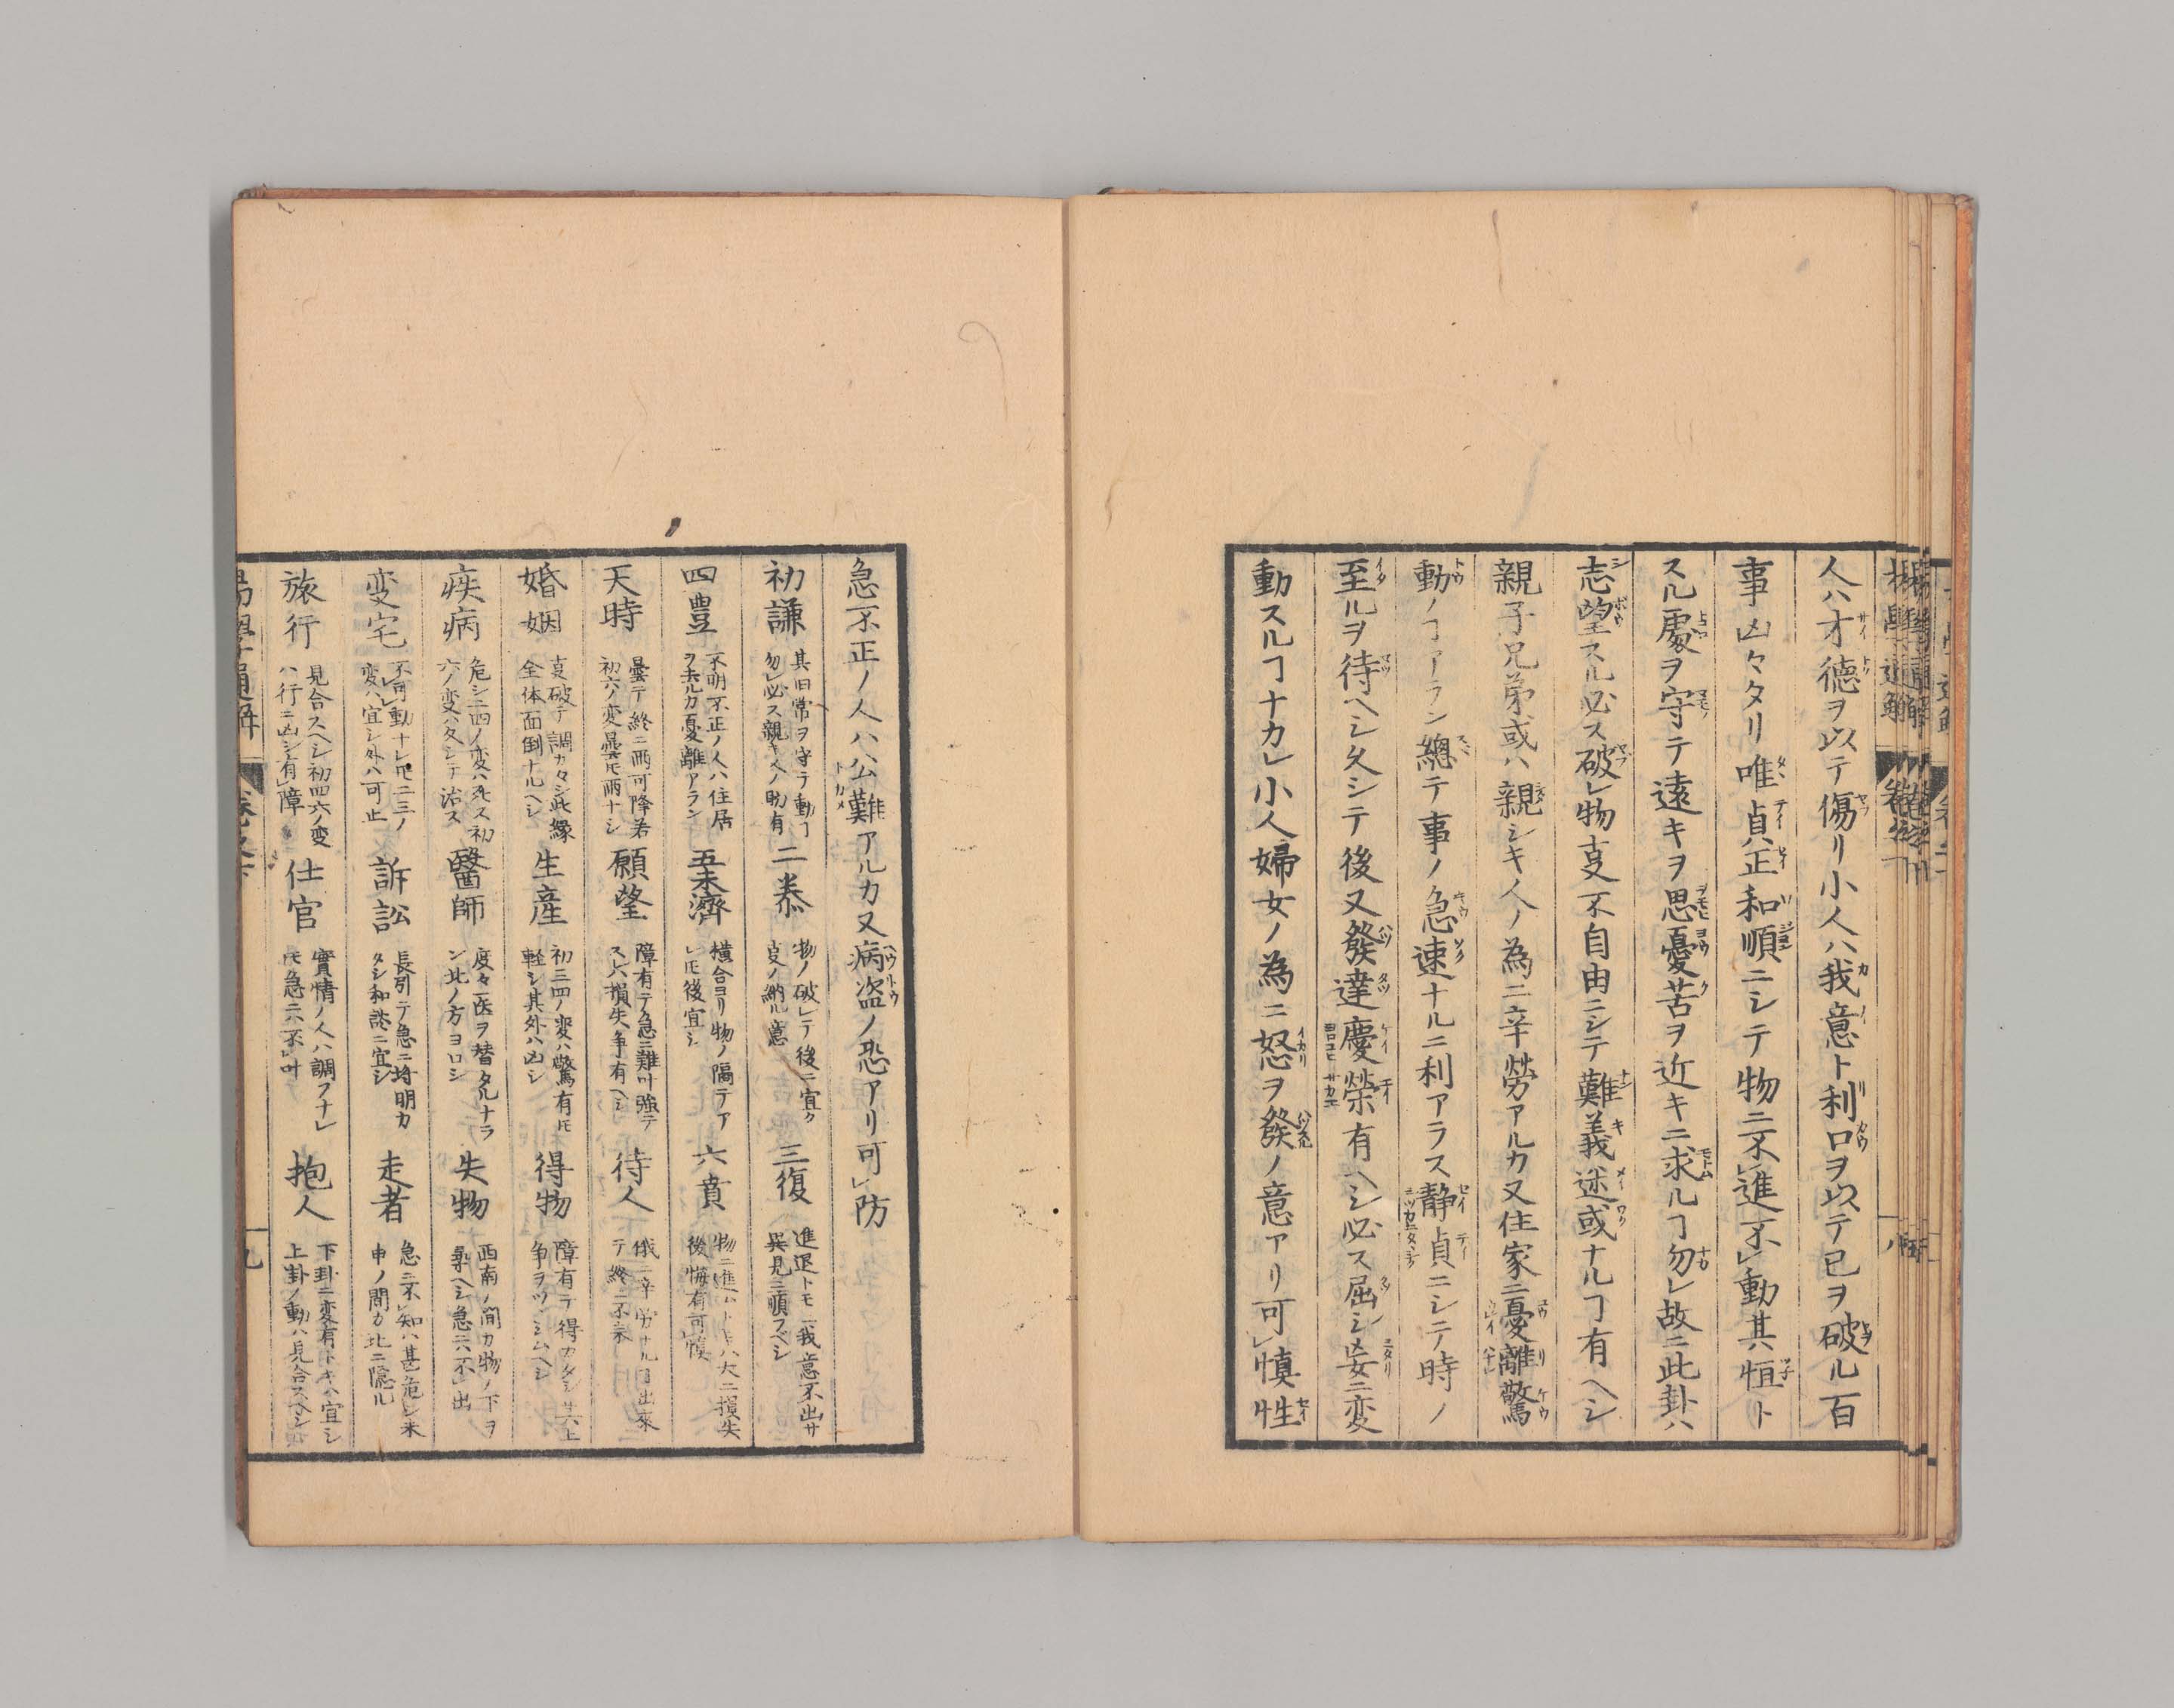 人ハ才徳ヲ以テ傷リ小人ハ我意ト利口ヲ以テ已ヲ破ル百
事凶々タリ唯貞正和順ニシテ物ニ不レ進不レ動其恒ト
スル處ヲ守テ遠キヲ思憂苦ヲ近キニ求ルヿ勿レ故ニ此卦ハ
志望スル必ス破レ物叓不自由ニシテ難義迷或ナルヿ有ヘシ
親子兄弟或ハ親シキ人ノ為ニ辛勞アルカ又住家ニ憂離驚
動ノヿアラン總テ事ノ急速ナルニ利アラス静貞ニシテ時ノ
至ルヲ待ヘシ久シテ後又發達慶榮有ヘシ必ス屈シ妄ニ変
動スルヿナカレ小人婦女ノ為ニ怒ヲ發ノ意アリ可レ慎性
急不正ノ人ハ公難アルカ又病盗ノ恐アリ可レ防
初謙
其旧常ヲ守テ動ヿ
勿レ必ス親キ人ノ助有
二泰
物ノ破レテ後ニ宜ク
叓ノ納ル意
三復
進退トモ我意不出サ
異見ニ順フベシ
四豊
不明不正ノ人ハ住居
ヲ去ルカ憂離アラン
五未濟
横合ヨリ物ノ隔テア
レ𪜈後宜シ
六賁
物ニ進ムトキハ大ニ損失
後悔有可レ慎
天時
曇テ終ニ雨可降若
初六ノ変曇𪜈雨ナシ
願望
障有テ急ニ難叶強テ
スレハ損失争有ヘシ
待人
俄ニ辛労ナルヿ出来
テ終ニ不来
婚姻
叓破テ調カタシ此縁
全体面倒ナルヘシ
生産
初三四ノ変ハ驚有𪜈
軽シ其外ハ凶シ
得物
障有テ得カタシ
争ヲツヽシムヘシ
疾病
危シ三四ノ変ハ死ス初
六ノ変ハ久シテ治ス
醫師
度々医ヲ替タルナラ
ン北ノ方ヨロシ
失物
西南ノ間カ物ノ下ヲ
尋ヘシ急ニハ不レ出
変宅
不レ可動ナレ𪜈二三ノ
変ハ宜シ外ハ可止
訴訟
長引テ急ニ埒明カ
タシ和談ニ宜シ
走者
急ニ不レ知ハ甚危シ未
申ノ間カ北ニ隠ル
旅行
見合スヘシ初四六ノ変
ハ行ニ凶シ有レ障
仕官
實情ノ人ハ調フナレ
𪜈急ニハ不レ叶
抱人
下卦ニ変有トキハ宜シ
上卦ノ動ハ見合スヘシ
易學通解 卷之下 九